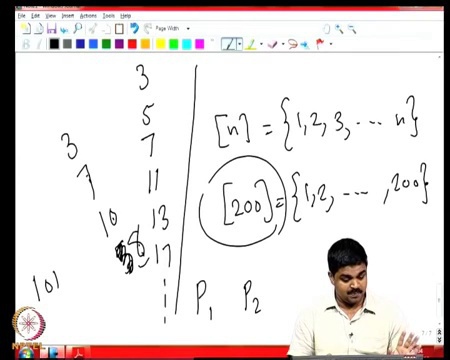 File Edit View Insert Actions Tools Help
Page Width
3
5
3 7
7 11
10 13
8 17
101
[n] = {1, 2, 3, ---- n}
[200] = {1, 2, ----, 200}
P1 P2